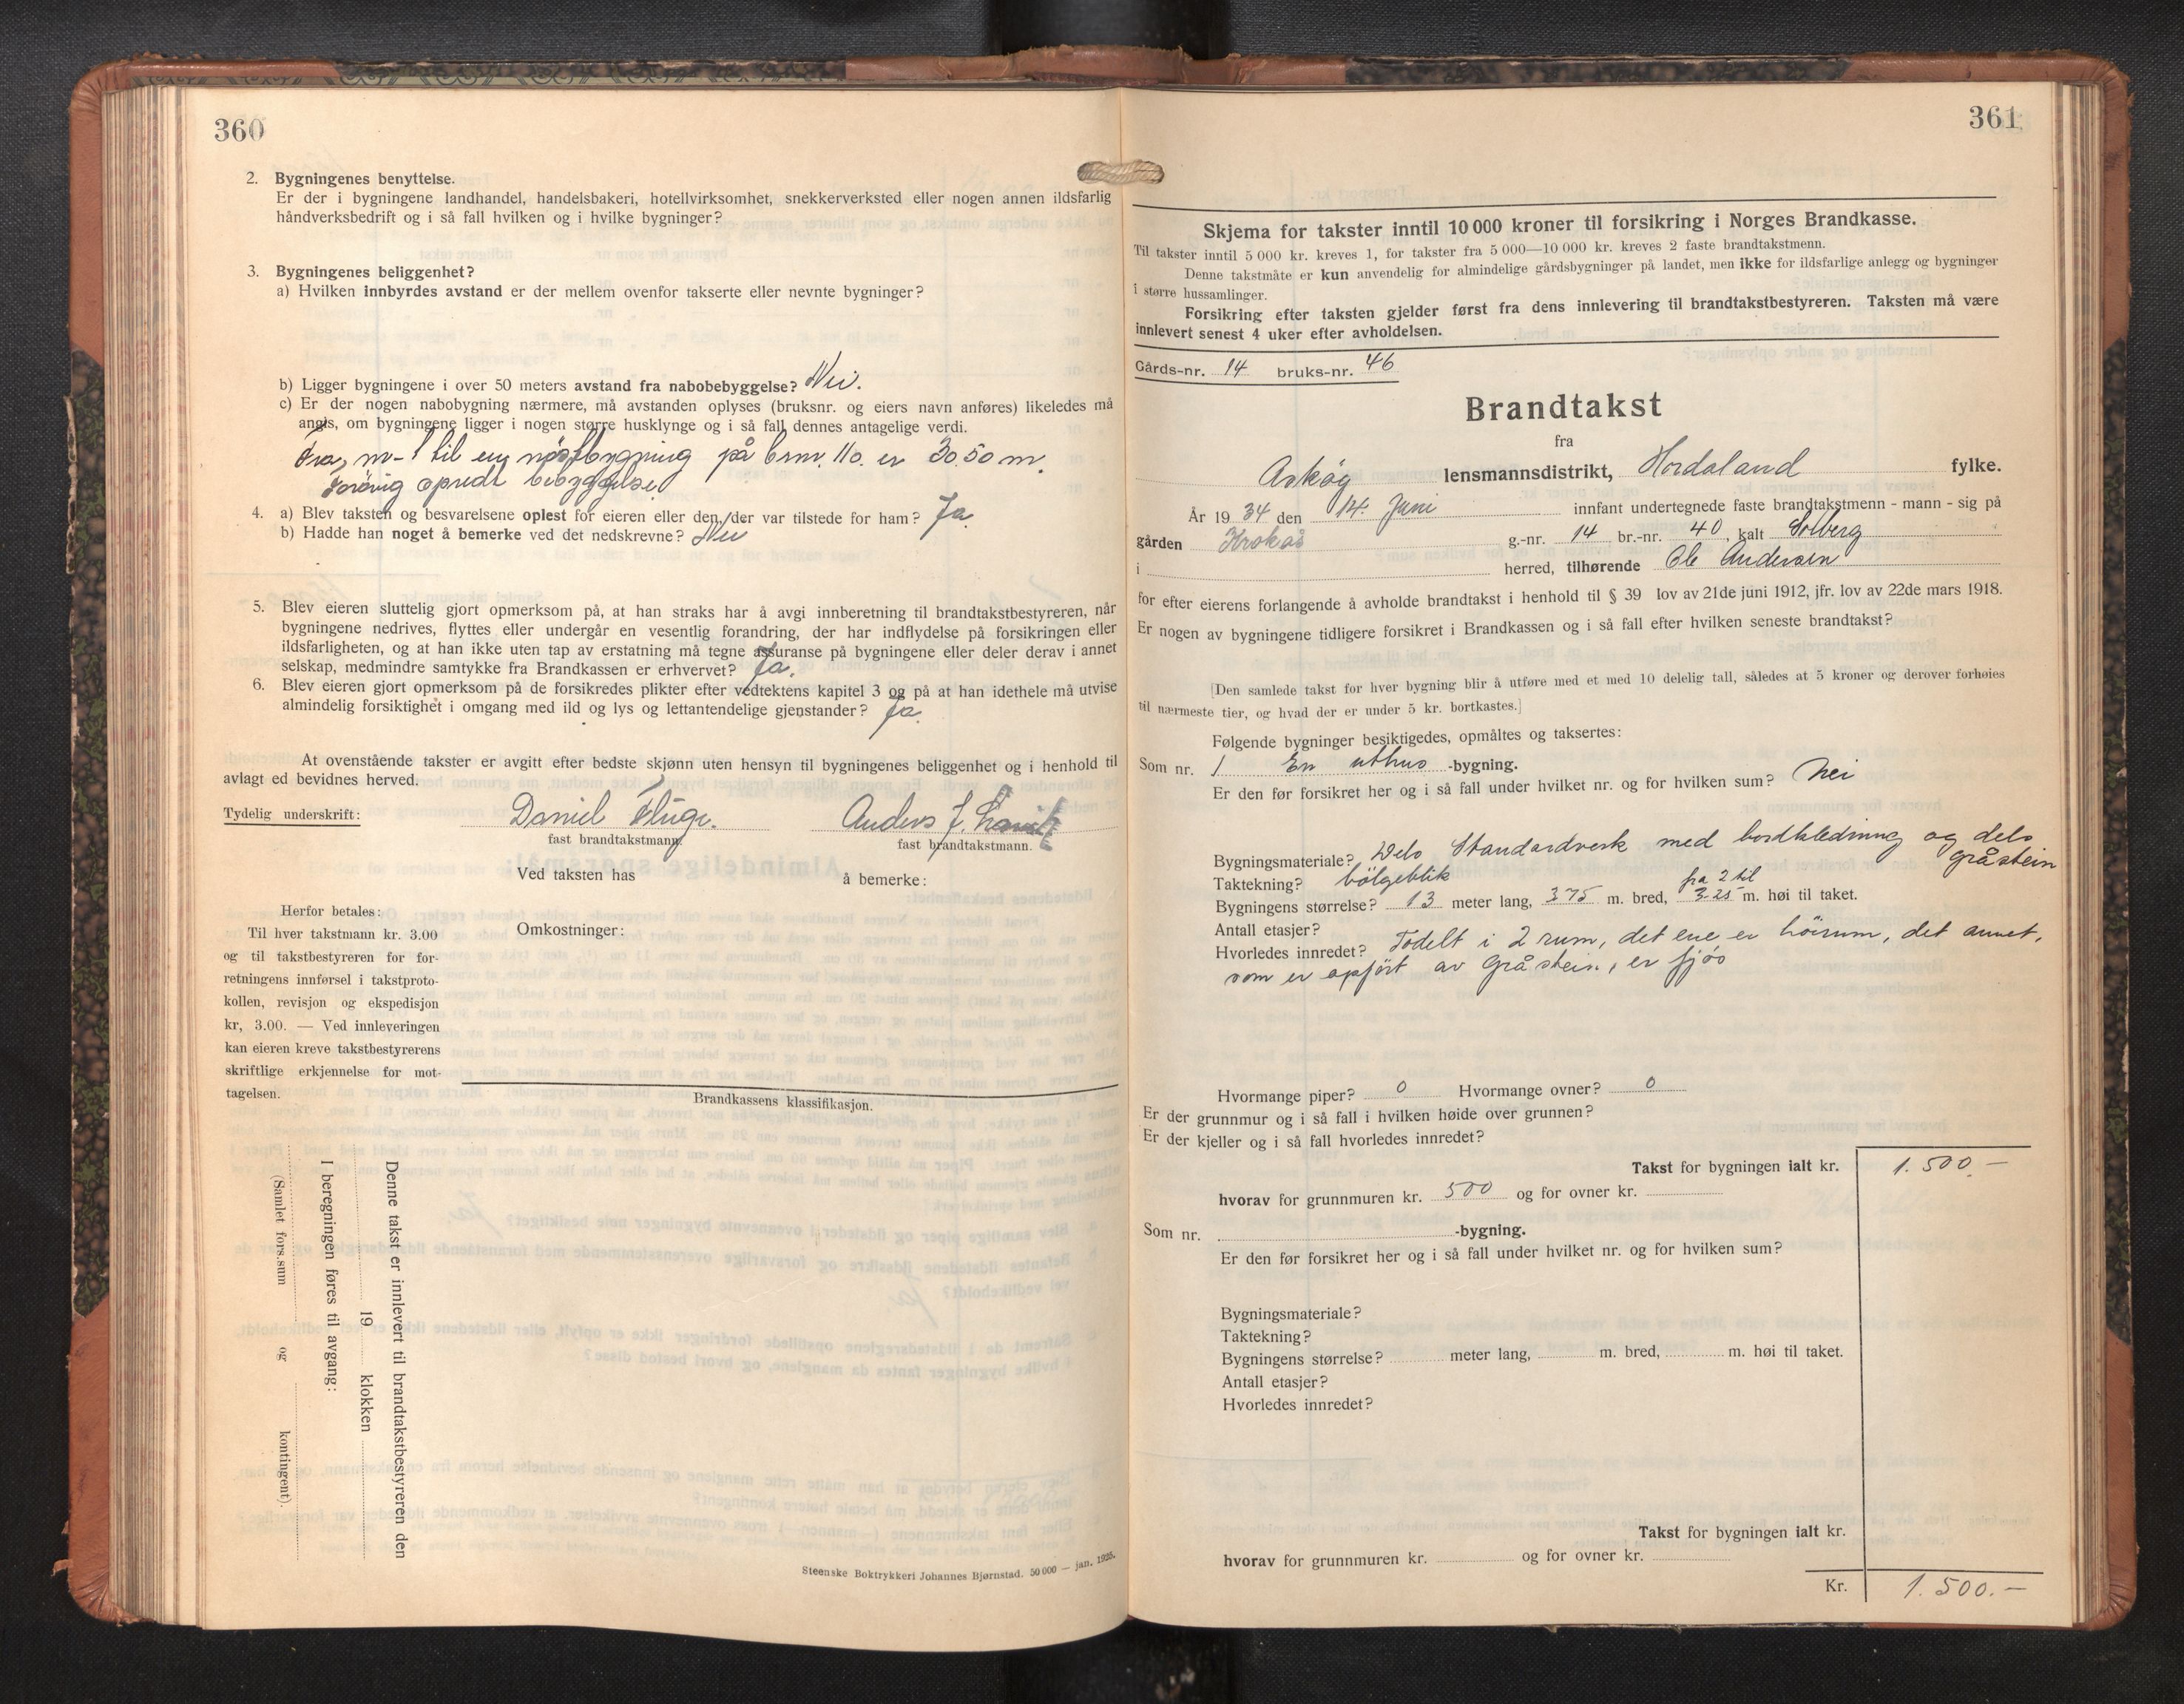 360
2. Bygningenes benyttelse.
Er der i bygningene landhandel, handelsbakeri, hotellvirksomhet, snekkerverksted eller nogen annen ildsfarlig
håndverksbedrift og i så fall hvilken og i hvilke bygninger?
3. Bygningenes beliggenhet?
a) Hvilken innbyrdes avstand er der mellem ovenfor takserte eller nevnte bygninger?
b) Ligger bygningene i over 50 meters avstand fra nabobebyggelse? Nei.
c) Er der nogen nabobygning nærmere, må avstanden oplyses (bruksnr. og eiers navn anføres) likeledes må
angis, om bygningene ligger i nogen større husklynge og i så fall dennes antagelige verdi.
Fra m-1 til en nöstbygning på brnr. 110. er 30.50 m.
forövrig spredt bebyggelse
4. a) Blev taksten og besvarelsene oplest for eieren eller den/der var tilstede for ham? Ja
b) Hadde han noget å bemerke ved det nedskrevne? Nei
5. Blev eieren sluttelig gjort opmerksom på, at han straks har å avgi innberetning til brandtakstbestyreren, når
bygningene nedrives, flyttes eller undergår en vesentlig forandring, der har indflydelse på forsikringen eller
ildsfarligheten, og at han ikke uten tap av erstatning må tegne assuranse på bygningene eller deler derav i annet
selskap, medmindre samtykke fra Brandkassen er erhvervet? Ja.
6. Blev eieren gjort opmerksom på de forsikredes plikter efter vedtektens kapitel 3 og på at han idethele må utvise
almindelig forsiktighet i omgang med ild og lys og lettantendelige gjenstander? Ja.
At ovenstående takster er avgitt efter bedste skjønn uten hensyn til bygningenes beliggenhet og i henhold til
avlagt ed bevidnes herved.
Tydelig underskrift: Daniel Fluge. Anders J.
fast brandtakstmann. fast brandtakstmann.
Ved taksten has å bemerke:
Herfor betales:
Til hver takstmann kr. 3.00
og til takstbestyreren for for-
retningens innførsel i takstproto-
kollen, revisjon og ekspedisjon
kr, 3.00. — Ved innleveringen
kan eieren kreve takstbestyrerens
skriftlige erkjennelse for mot-
tagelsen.
Omkostninger:
Brandkassens klassifikasjon.
Denne takst er innlevert til brandtakstbestyreren den
19 klokken
I beregningen føres til avgang:
(Samlet fors.sum og kontingent).
Steenske Boktrykkeri Johannes Bjørnstad. 50 000 — jan. 1925.
361
Skjema for takster inntil 10 000 kroner til forsikring i Norges Brandkasse.
Til takster inntil 5 000 kr. kreves 1, for takster fra 5 000—10 000 kr. kreves 2 faste brandtakstmenn.
Denne takstmåte er kun anvendelig for almindelige gårdsbygninger på landet, men ikke for ildsfarlige anlegg og bygninger
i større hussamlinger.
Forsikring efter taksten gjelder først fra dens innlevering til brandtakstbestyreren. Taksten må være
innlevert senest 4 uker efter avholdelsen.
Gårds-nr. 14 bruks-nr. 46
Brandtakst
fra
Askøy lensmannsdistrikt, Hordaland fylke.
År 1934 den 14. Juni innfant undertegnede faste brandtakstmenn - mann - sig på
gården Krokås g.-nr. 14 br.-nr. 40, kalt Solberg
i herred, tilhørende Ole Andersen
for efter eierens forlangende å avholde brandtakst i henhold til § 39 lov av 21de juni 1912, jfr. lov av 22de mars 1918.
Er nogen av bygningene tidligere forsikret i Brandkassen og i så fall efter hvilken seneste brandtakst?
[Den samlede takst for hver bygning blir å utføre med et med 10 delelig tall, således at 5 kroner og derover forhøies
til nærmeste tier, og hvad der er under 5 kr. bortkastes.]
Følgende bygninger besiktigedes, opmåltes og taksertes:
Som nr. 1 En uthus -bygning.
Er den før forsikret her og i så fall under hvilket nr. og for hvilken sum? Nei
Bygningsmateriale? Dels Standardverk med bordkledning og dels
gråstein
Taktekning? bölgeblik
fra 2 til
Bygningens størrelse? 13 meter lang, 3.75 m. bred, 3.25 m. høi til taket.
Antall etasjer?
Hvorledes innredet? Todelt i 2 rum, det ene er höirum, det annet,
som er opfört av Gråstein, er fjös
Hvormange piper? 0 Hvormange ovner? 0
Er der grunnmur og i så fall i hvilken høide over grunnen?
Er der kjeller og i så fall hvorledes innredet?
Takst for bygningen ialt kr. 1.500.—
hvorav for grunnmuren kr. 500 og for ovner kr.
Som nr. -bygning.
Er den før forsikret her og i så fall under hvilket nr. og for hvilken sum?
Bygningsmateriale?
Taktekning?
Bygningens størrelse? meter lang, m. bred, m. høi til taket.
Antall etasjer?
Hvorledes innredet?
Takst for bygningen ialt kr.
hvorav for grunnmuren kr. og for ovner kr.
Kr. 1.500.—